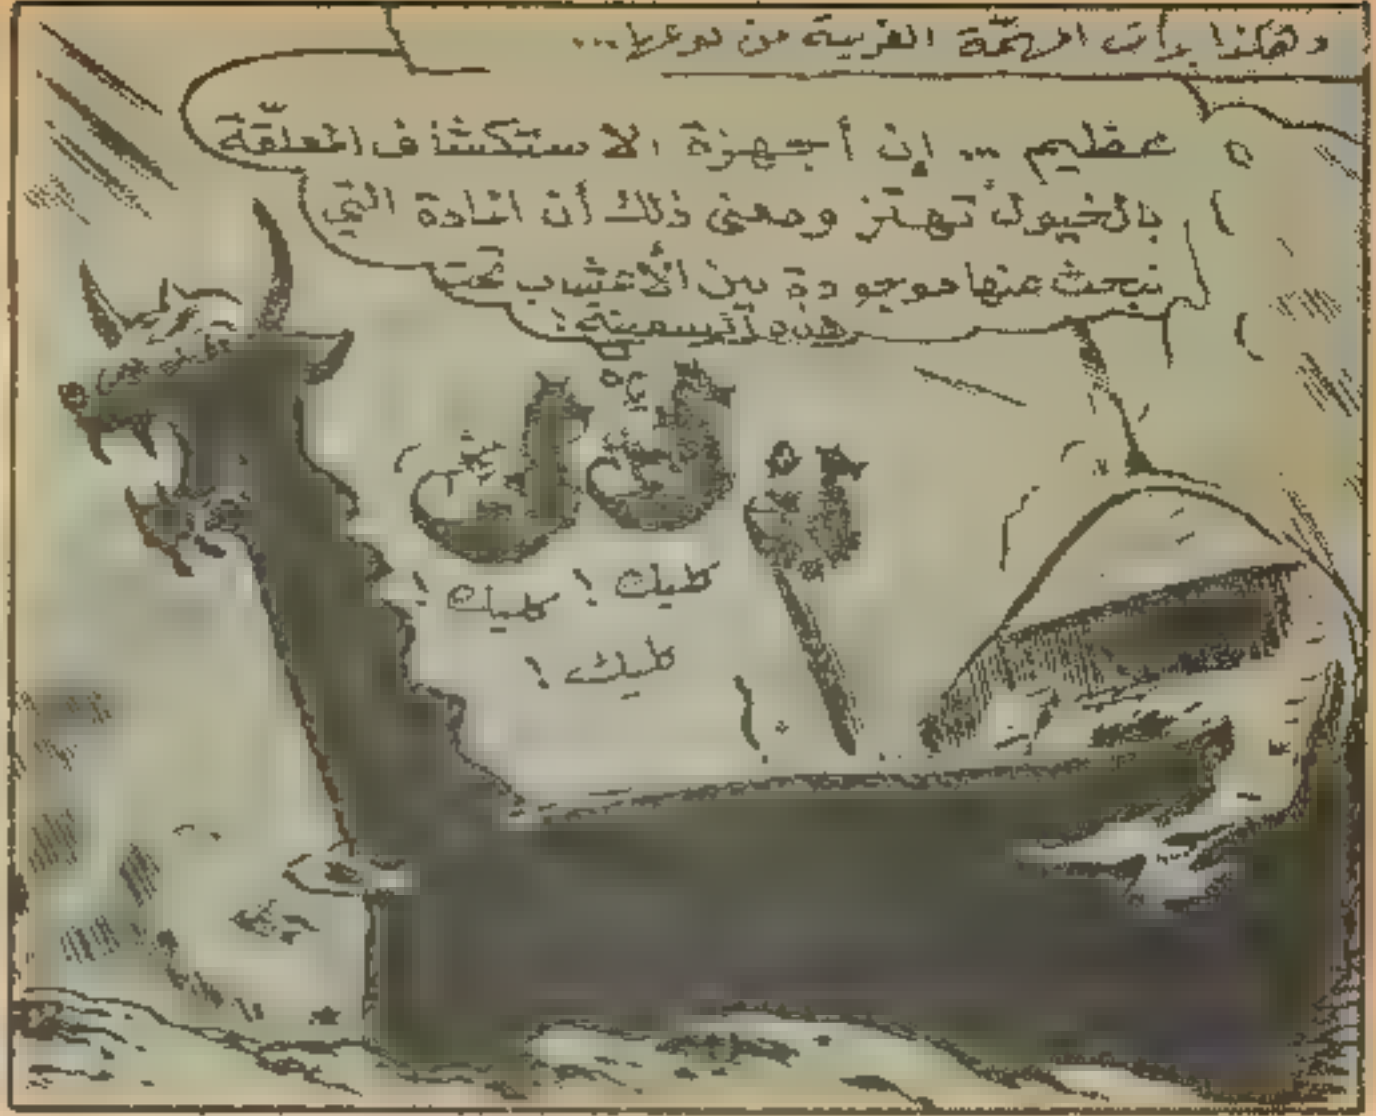 وهكذا بدأت المهمّة الغريبة من نوعها...
عظيم ... إن أجهزة الاستكشاف المعلّقة
بالخيول تهتز ومعنى ذلك أن المادة التي
نبحث عنها موجودة بين الأعشاب تحت
هذه السفينة!
كليك! كليك!
كليك!